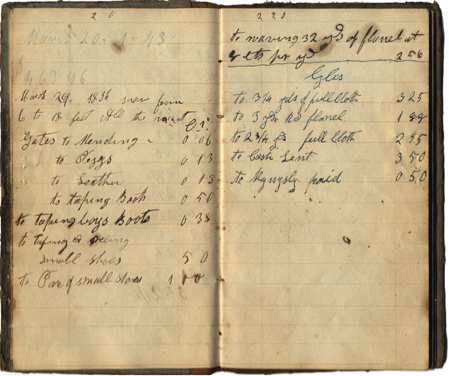 March 20. 1843
463 46
March 29. 1836 snow from
6 to 18 feet All the
Gates to Mending - 0 06
to Peggs 0 13
to Leather 0 13
to taping Book 0 50
to taping boys Boots 0 38
to taping &
Small Shoes 5 0
to Pare of small shoes 1 10
to weaving 32 yd of flanel at
8 cts per yd 2 56
Gles
to 3 1/4 yds of full cloth 3 25
to 3 yds flanel 1 88
to 2 3/4 yds full cloth 2 45
to Cash Sent 3 50
to paid 0 50